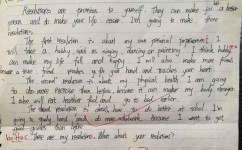 Resolutions are promises to yourself. They can make you a better
person and do make your life easier. I'm going to make three
resolutions.
The first resolution is about my own personal improvement. I
will take a hobby, such as singing, dancing or painting. I think hobby
can make my life full and happy. I will also make more friends
a true friend reaches for your hand and touches your heart.
The second resolution is about my physical health. I am going
to do more exercise than before, because it can make my body stronger.
I also will eat healthier food
The third resolution is about how to do better at school. I'm
going to study hard because I want to get
good grades
These are my resolutions. What about your resolution?